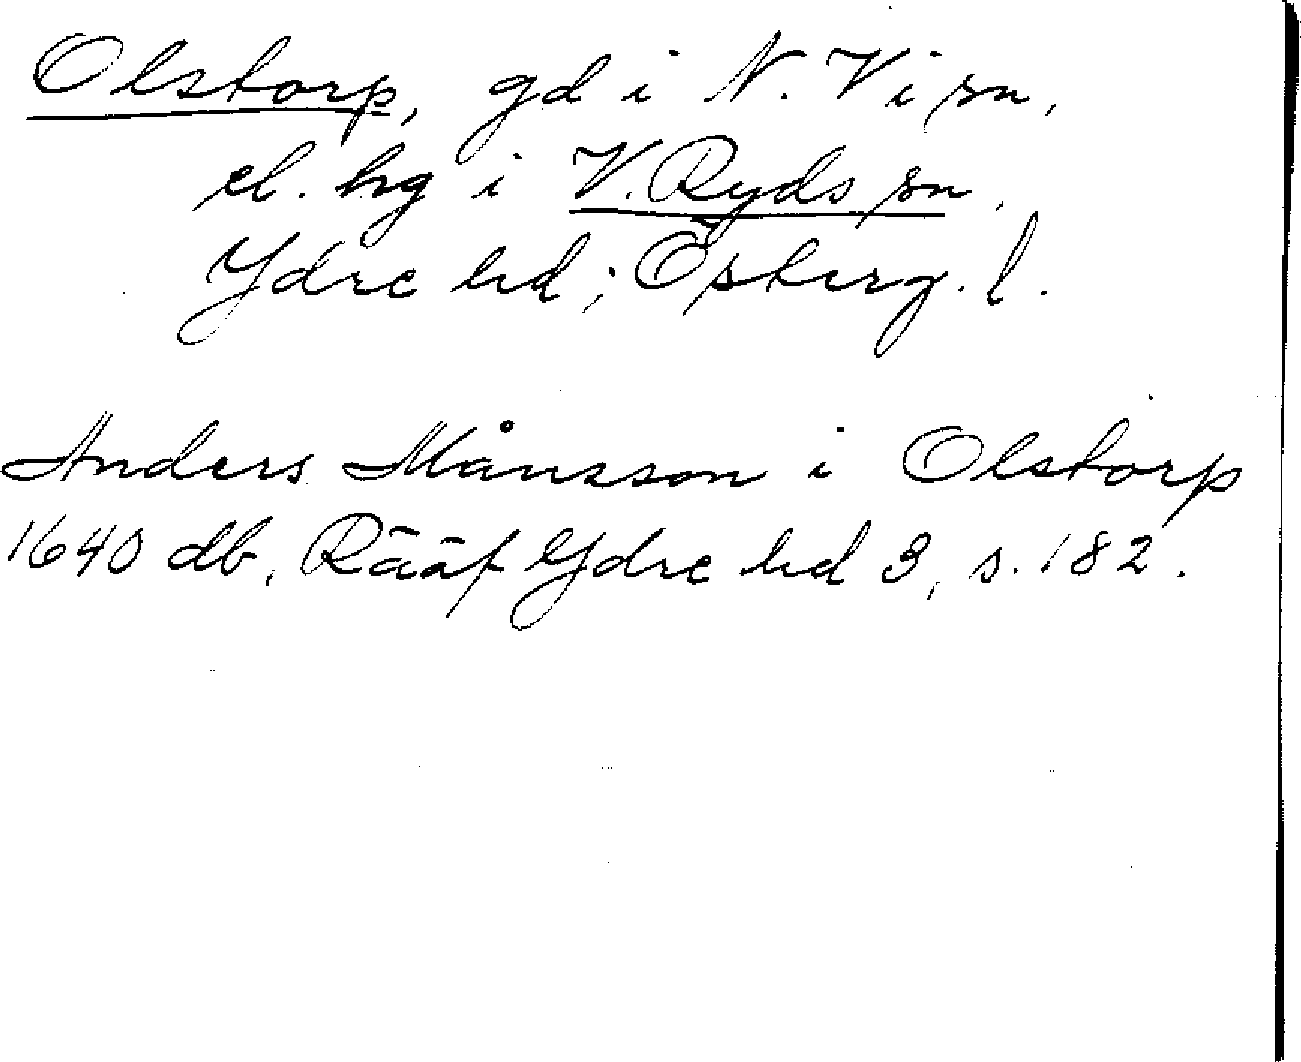 Olstorp, gd i N. Vi sn,
el. hg i V. Ryds sn,
Ydre hd; Österg. l.
Anders Månsson i Olstorp
1640 db, Rääf Ydre hd 3, s. 182.